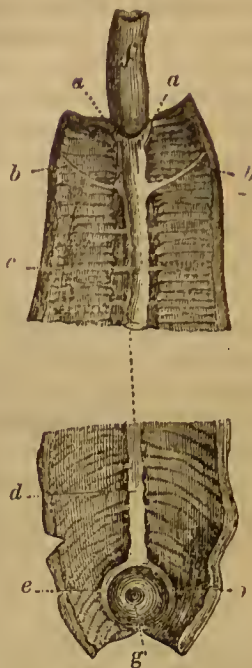 f
a a
b b
c
d
e
g